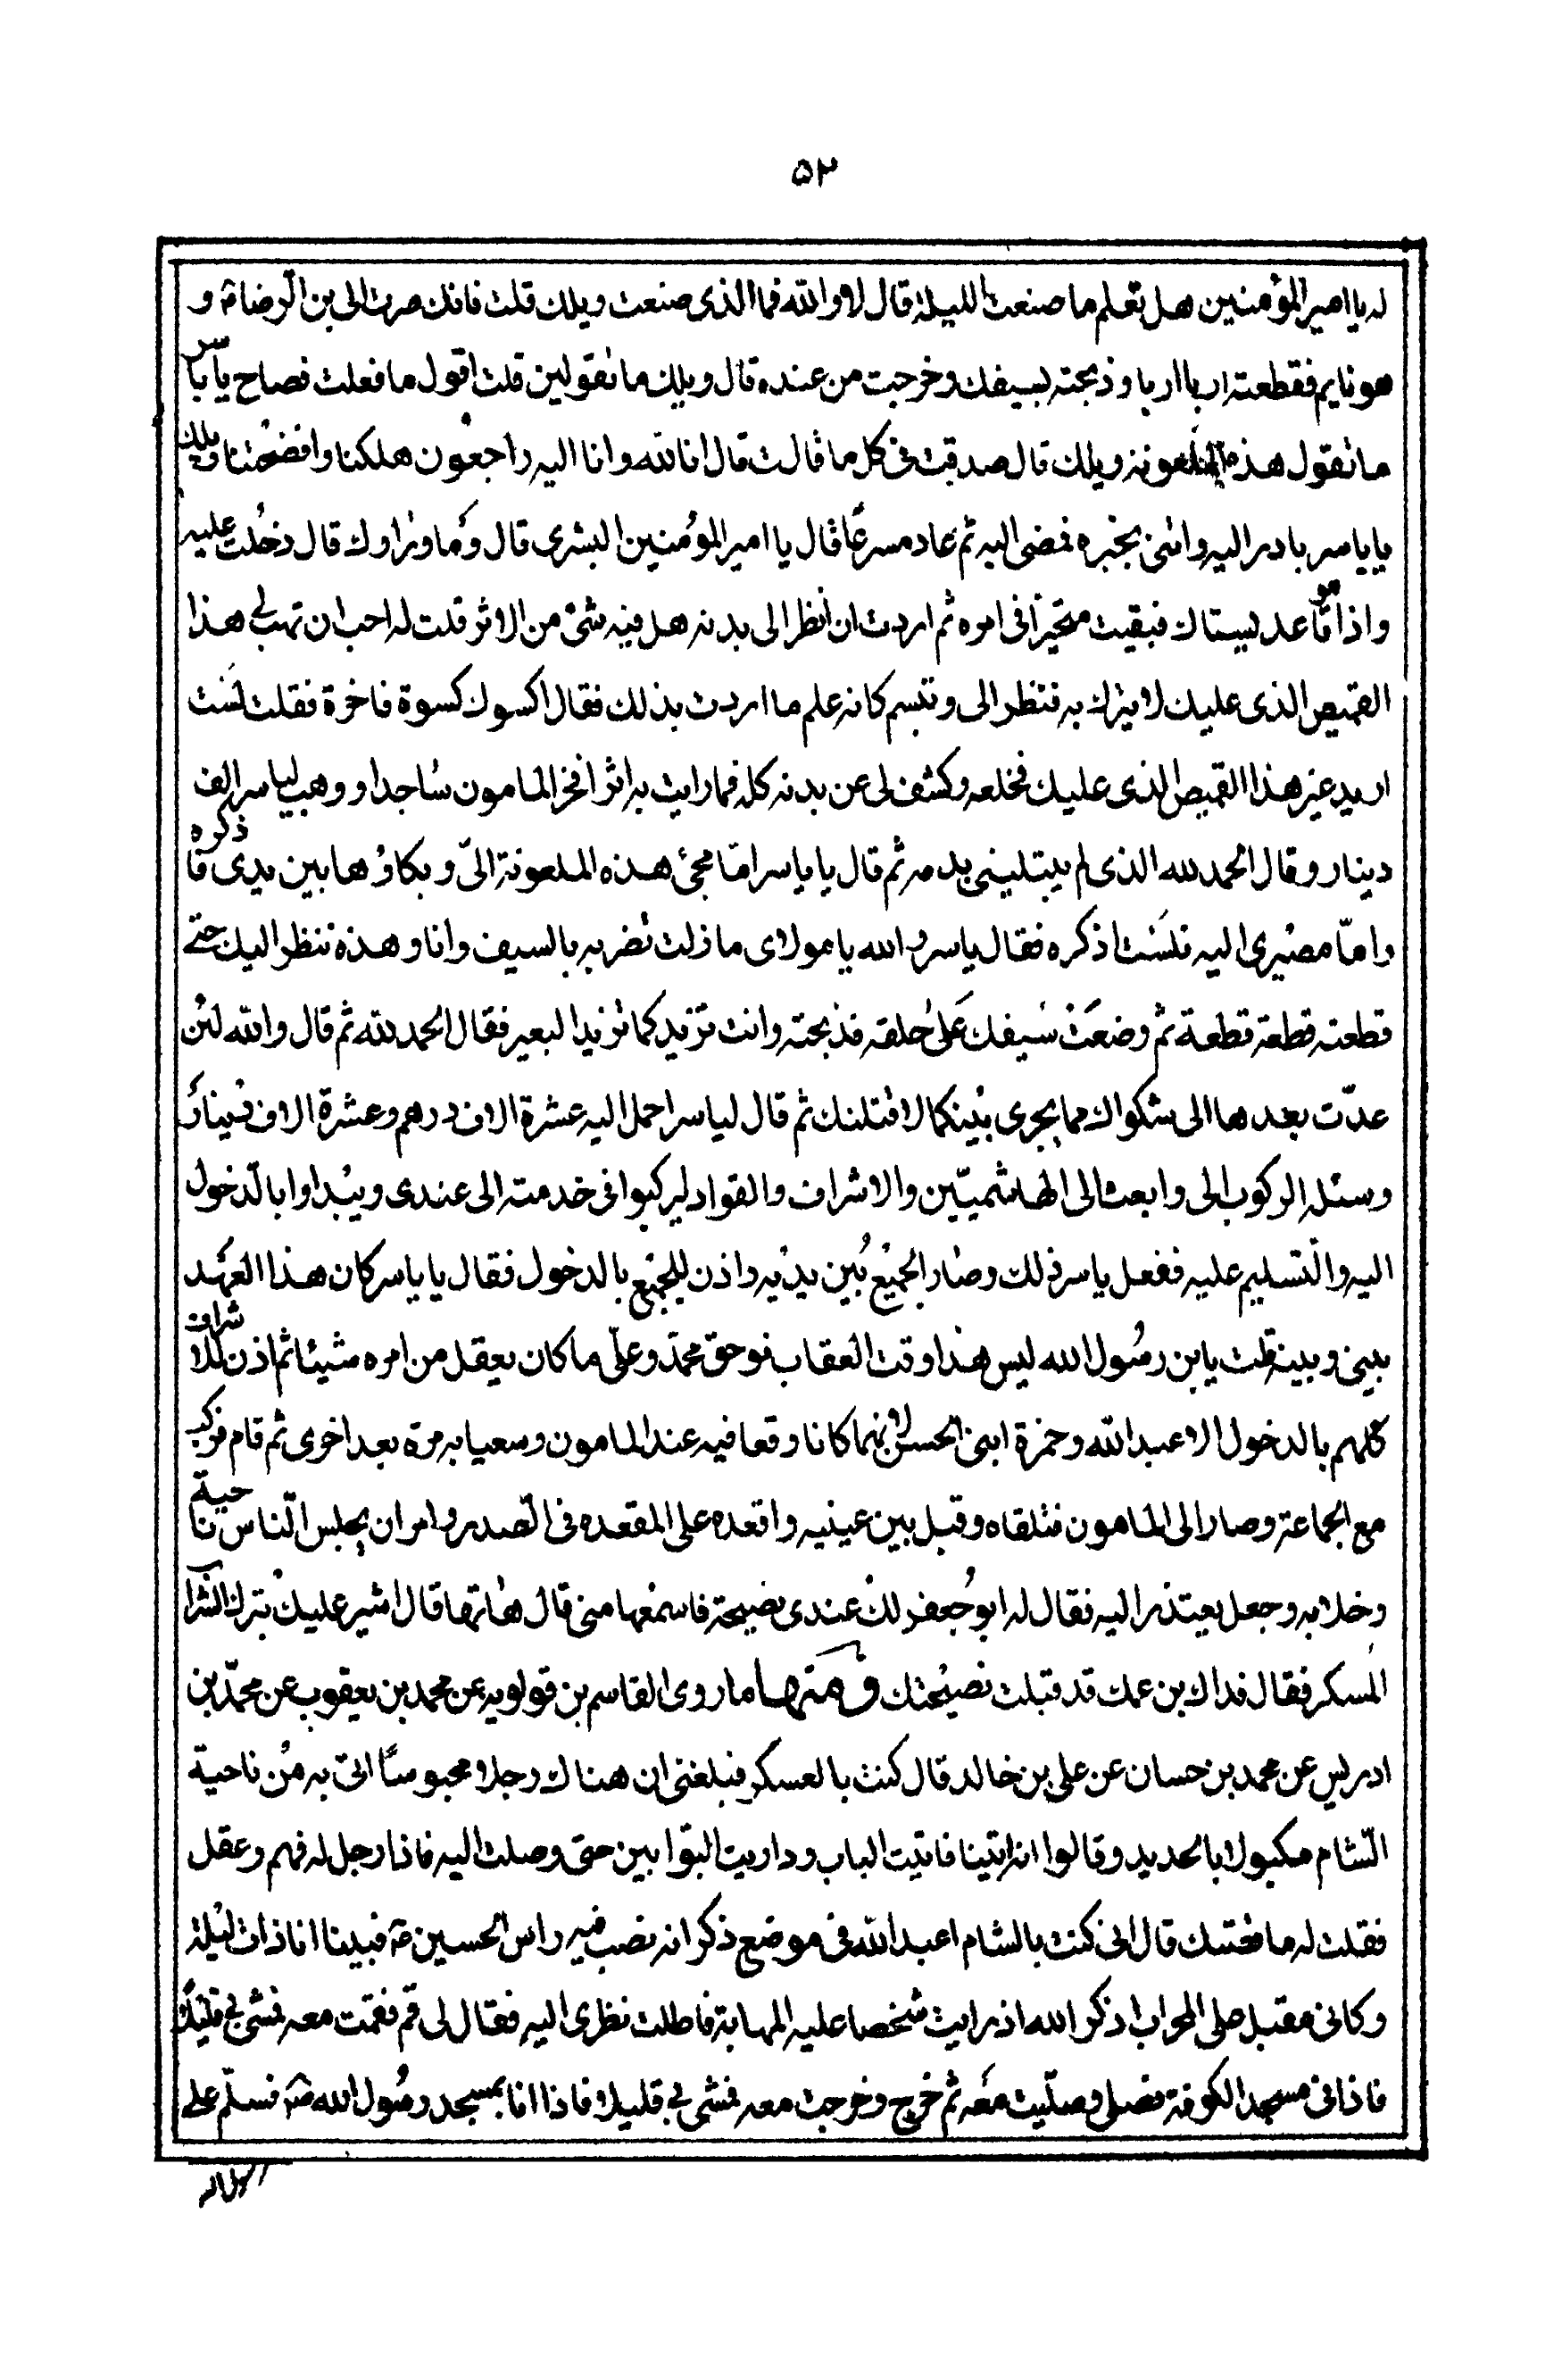 ۵۲
له يا امير المؤمنين هل تعلم ما صنعت الليلة قال لا والله فما الذى صنعت ويلك قلت فانك صرت الى بن الرضا ع و
هو نايم فقطعته اربا اربا وذبحته بسيفك وخرجت من عنده قال ويلك ما تقولين قلت اقول ما فعلت فصاح يا ياسر
ما تقول هذه الملعونة ويلك قال صدقت فى كل ما قالت قال انا لله وانا اليه راجعون هلكنا وافتضحنا ويلك
يا ياسر بادر اليه وائتنى بخبره فمضى اليه ثم عاد مسرعا قال يا امير المؤمنين البشرى قال وما وراوك قال دخلت عليه
واذا هو قاعد يستاك فبقيت متحيرا فى امره ثم اردت ان انظر الى بدنه هل فيه شئ من الاثر قلت له احب ان تهب لى هذا
القميص الذى عليك لا تبرك به فنظر الى وتبسم كانه علم ما اردت بذلك فقال اكسوك كسوة فاخرة فقلت لست
اريد غير هذا القميص الذى عليك فخلعه وكشف لى عن بدنه كله فما رايت به اثرا فخر المامون ساجدا ووهب لياسر الف
دينار وقال الحمد لله الذى لم يبتلينى بدمه ثم قال يا ياسر امّا مجئ هذه الملعونة الىّ وبكاؤها بين يدى فاذكره
وامّا مصيرى اليه فلست اذكره فقال ياسر والله يا مولاى ما زلت تضربه بالسيف وانا وهذه ننظر اليك حتى
قطعته قطعة قطعة ثم وضعت سيفك على حلقه فذبحته وانت تزبد كما تزبد البعير فقال الحمد لله ثم قال والله لئن
عدّت بعدها الى شكواك مما يجرى بينكما لاقتلنك ثم قال لياسر احمل اليه عشرة الاف درهم وعشرة الاف دينار
وسئله الركوب الى وابعث الى الهاشميّين والاشراف والقواد ليركبوا فى خدمته الى عندى ويبداوا بالدخول
اليه والتسليم عليه ففعل ياسر ذلك وصار الجميع بين يديه واذن للجميع بالدخول فقال يا ياسر كان هذا العهد
بينى وبينه قلت يا بن رسول الله ليس هذا وقت العقاب فوحق محمّد وعلىّ ما كان يعقل من امره شيئا ثم اذن للاشراف
كلهم بالدخول الا عبد الله وحمزة ابنى الحسن لانهما كانا وقعا فيه عند المامون وسعيا به مرة بعد اخرى ثم قام فركب
مع الجماعة وصار الى المامون فتلقاه وقبل بين عينيه واقعده على المقعده فى الصدر وامر ان يجلس الناس ناحية
وخلا به وجعل يعتذر اليه فقال له ابو جعفر لك عندى نصيحة فاسمعها منى قال هاتها قال اشير عليك بترك الشراب
المسكر فقال فداك بن عمك قد قبلت نصيحتك ومنها ما روى القاسم بن قولويه عن محمد بن يعقوب عن محمّد بن
ادريس عن محمد بن حسان عن على بن خالد قال كنت بالعسكر فبلغنى ان هناك رجلا محبوسا اتى به من ناحية
الشام مكبولا بالحديد وقالوا انه تنبا فاتيت الباب وداريت البوّابين حتى وصلت اليه فاذا رجل له فهم وعقل
فقلت له ما قصتك قال انى كنت بالشام اعبد الله فى موضع ذكر انه نصب فيه راس الحسين ع فبينا انا ذات ليلة
وكانى مقبل على المحراب اذكر الله اذ رايت شخصا عليه المهابة فاطلت نظرى اليه فقال لى قم فقمت معه فمشى بى قليلا
فاذا فى مسجد الكوفة فصلى وصلّيت معه ثم خرج وخرجت معه فمشى بى قليلا فاذا انا بمسجد رسول الله ص فسلّم على